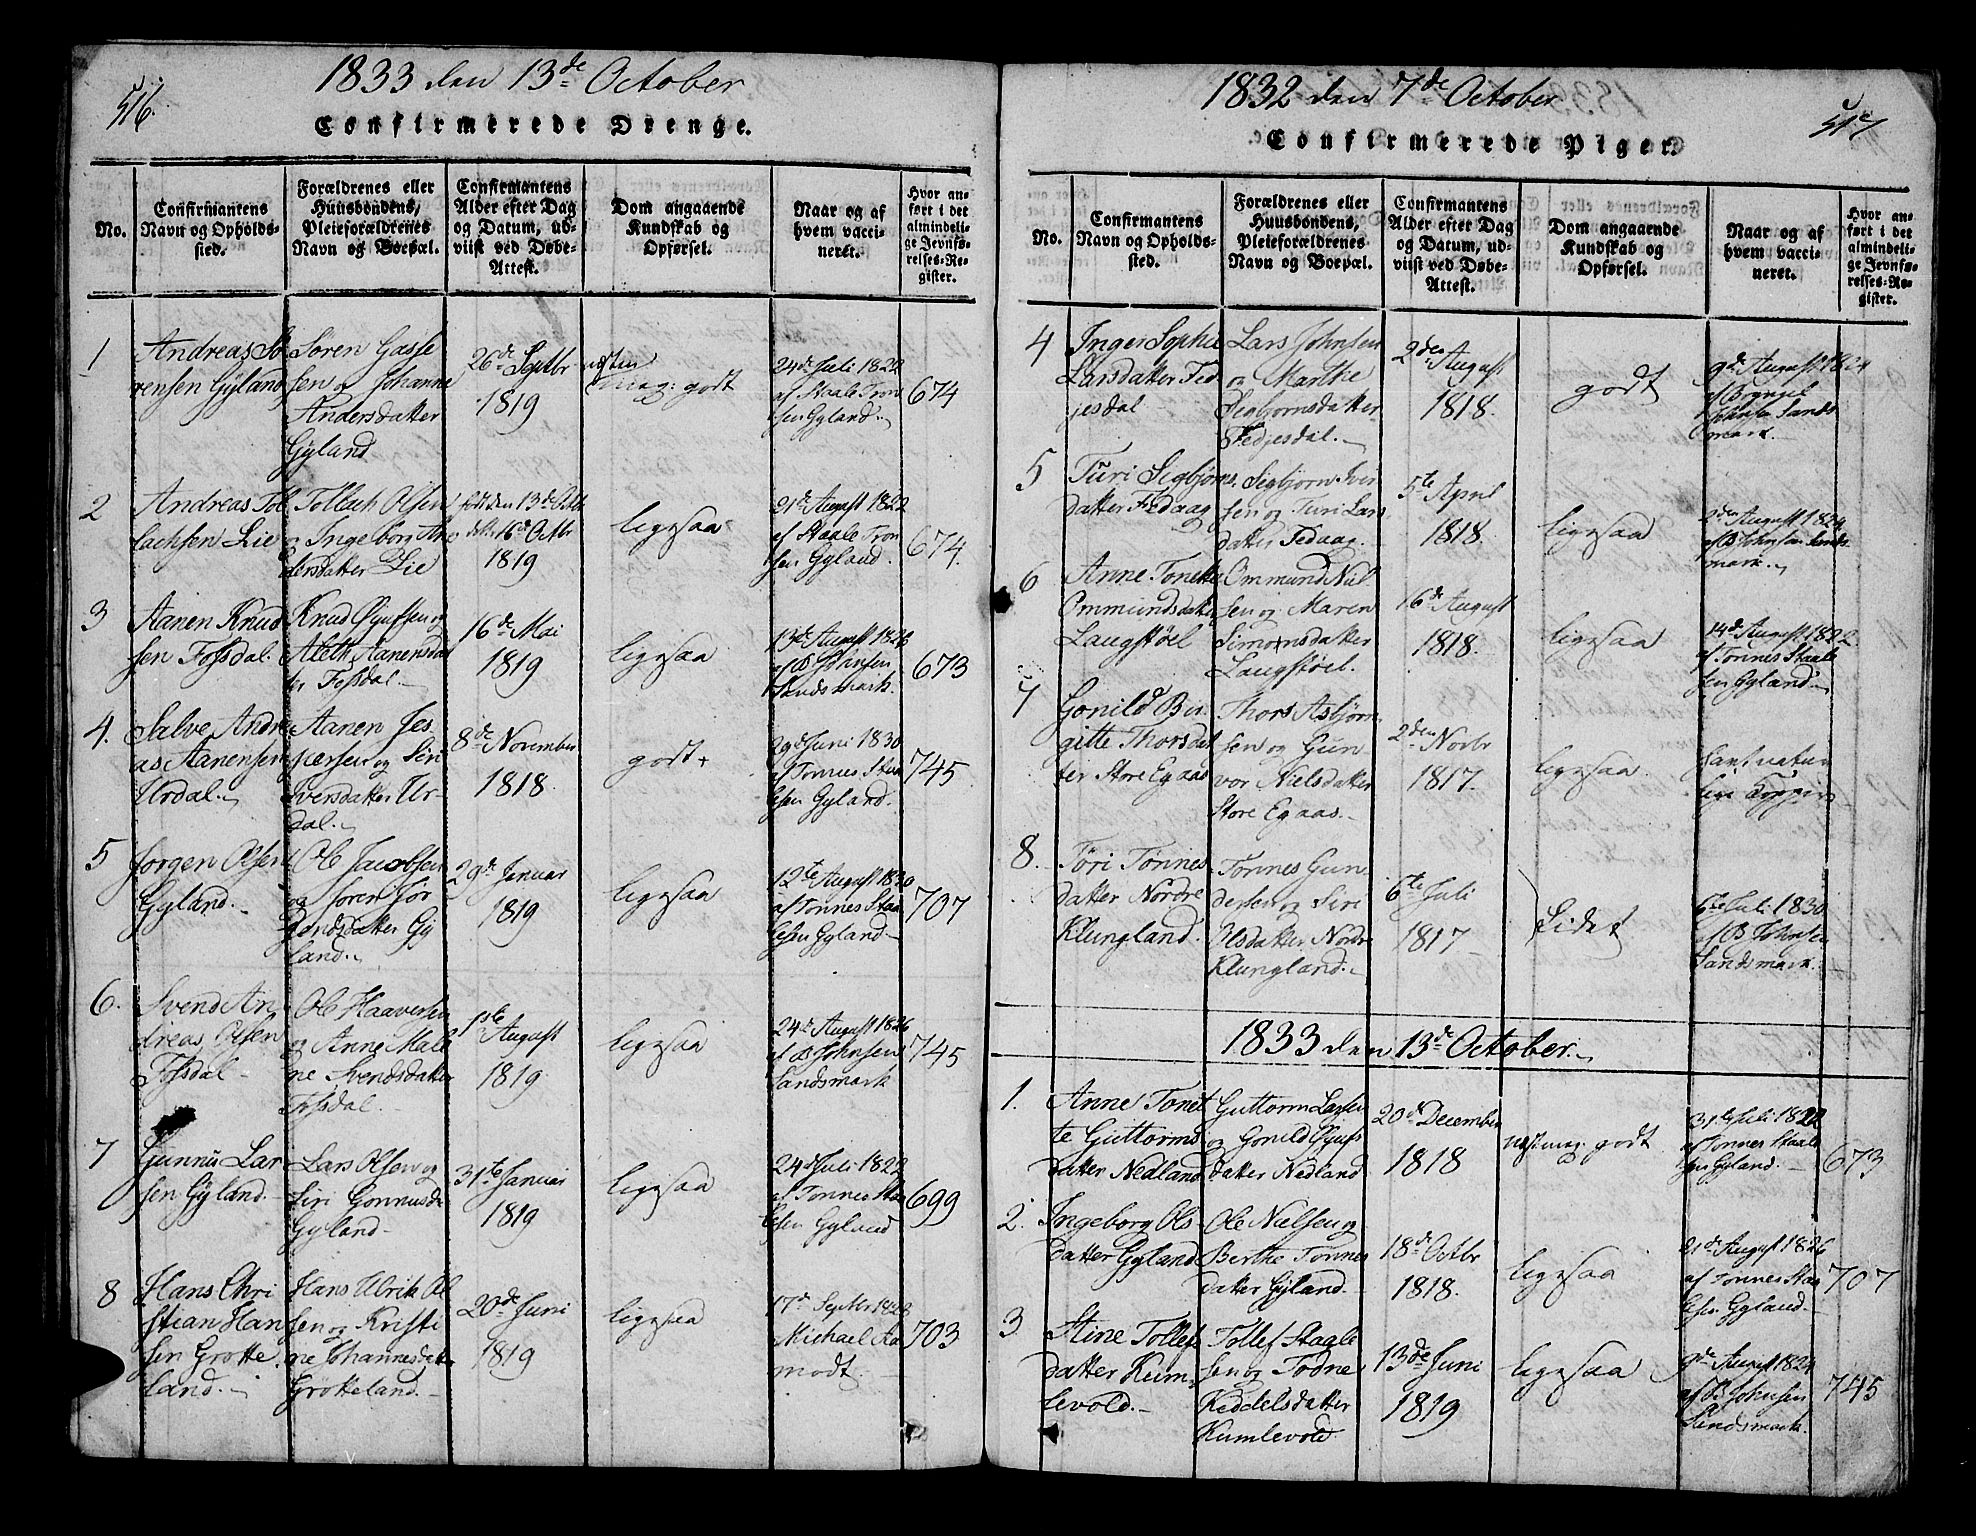 516.
1833 den 13de October
Confirmerede Drenge.
No.
Confirmantens
Navn og Opholds-
sted.
Forældrenes eller
Huusbondens,
Pleieforældrenes
Navn og Boepæl.
Confirmantens
Alder efter Dag
og Datum, ud-
viist ved Døbe-
Attest.
Dom angaaende
Kundskab og
Opførsel.
Naar og af
hvem vacci-
neret.
Hvor an-
ført i det
almindeli-
ge Jevnfø-
relses-Re-
gister.
1
Andreas Sø
rensen Gyland
Søren Gasse
sen og Johanne
Andersdatter
Gyland
26de Septbr
1819
mag: godt
24de Juli 1822
af Staale Tron
sen Gyland.
674
2
Andreas Tol
lachsen Lie
Tollach Olsen
og Ingebor An
dersdatter Lie
født den 13de Octb
16de Octbr
1819
ligesaa
21de August 1822
af Staale Tron
sen Gyland.
674.
3
Aanen Knud
sen Fossdal.
Knud Øyufsen og
Aleth Aanensdat
ter Fossdal.
16de Mai
1819
ligesaa
13de August 1826
af B Johnsen
Sandsmark.
673
4.
Salve Andre
as Aanensen
Urdal.
Aanen Jes
persen og Siri
Iversdatter Ur-
dal.
8de November
1818.
godt
29de Juni 1830
af Tønnes Staa
lesen Gyland.
745
5
Jørgen Olsen
Gyland.
Ole Jacobsen
og Søren Jør
gensdatter Gy
land.
29de Januar
1819
ligesaa
12te August 1830
af Tønnes Staa
lesen Gyland
707
6.
Svend An-
dreas Olsen
Fossdal
Ole Haaversen
og Anne Mal
ne Svendsdatter
Fossdal.
1ste August
1819
ligesaa
24de August 1826
af B Johnsen
Sandsmark
745
7
Gunnus Lar
sen Gyland
Lars Olsen og
Siri Gonnusda
Gyland
31te Januar
1819
ligesaa
24de Juli 1822
af Tønnes Staa
lesen Gyland
699
8
Hans Chri
stian Han
sen Grotte
land.
Hans Ulrik Ol
sen og Kristi
ne Johannesdatter
Grøtteland.
20de Juni
1819
ligesaa
17de Septbr 1823
Michael Aa
modt.
703
1832 den 7de October
517
Confirmerede Piger.
No.
Confirmantens
Navn og Opholds-
sted.
Forældrenes eller
Huusbondens,
Pleieforældrenes
Navn og Boepæl.
Confirmantens
Alder efter Dag
og Datum, ud-
viist ved Døbe-
Attest.
Dom angaaende
Kundskab og
Opførsel.
Naar og af
hvem vacci-
neret.
Hvor an-
ført i det
almindeli-
ge Jevnfø-
relses-Re-
gister.
4
Inger Sophie
Larsdatter Fed
jesdal
Lars Johnsen
og Marthe
Segbjornsdatter
Fedjesdal.
2den August
1818.
godt
9de August 1824
Johnsen Sands
mark.
5
Turi Segbjorns
datter Fedaag
Segbjorn Iver
sen og Turi Lars
datter Fedaag.
5te April
1818.
ligesaa
2den August 1824
af B Johnsen Sands
mark.
6
Anne Tonette
Ommundsdatter
Laugstøel
Ommund Niel
sen og Maren
Simonsdatter
Laugstøel.
16de August
1818.
ligesaa
14de August 1822
af Tønnes Staale
sen Gyland
7
Gonild Bir
gitte Thorsdat
ter Store Egaas
Thors Asbjørn
sen og Gun
vor Nielsdatter
Store Egaas.
2den Novbr
1817.
ligesaa
havt natur
lige Kopper
8.
Tøri Tønnes
datter Nordre
Klungland.
Tønnes Gun
dersen og Siri
Olsdatter Nordr
Klungland.
6te Juli
1817
6te Juli 1830
af B Johnsen
Sandsmark.
1833 den 13de October.
1.
Anne Tonet
te Guttorms
datter Nedland
Guttorm Larsen
og Gonild Øyufs
datter Nedland
20de December
1818
mag: godt
31te Juli 1822
af Tønnes Staale
sen Gyland.
673
2.
Ingeborg Ols
datter Gyland
Ole Nielsen og
Berthe Tønnes
datter Gyland.
18de Octbr
1818.
ligesaa
21de August 1826
af Tønnes Staa
lesen Gyland.
707
3
Stine Tollefs
datter Kum
levold.
Tollef Staale
sen og Todne
Keddelsdatter
Kumlevold
13de Juni
1819
ligesaa
9de August 1824
af B Johnsen
Sandsmark
745